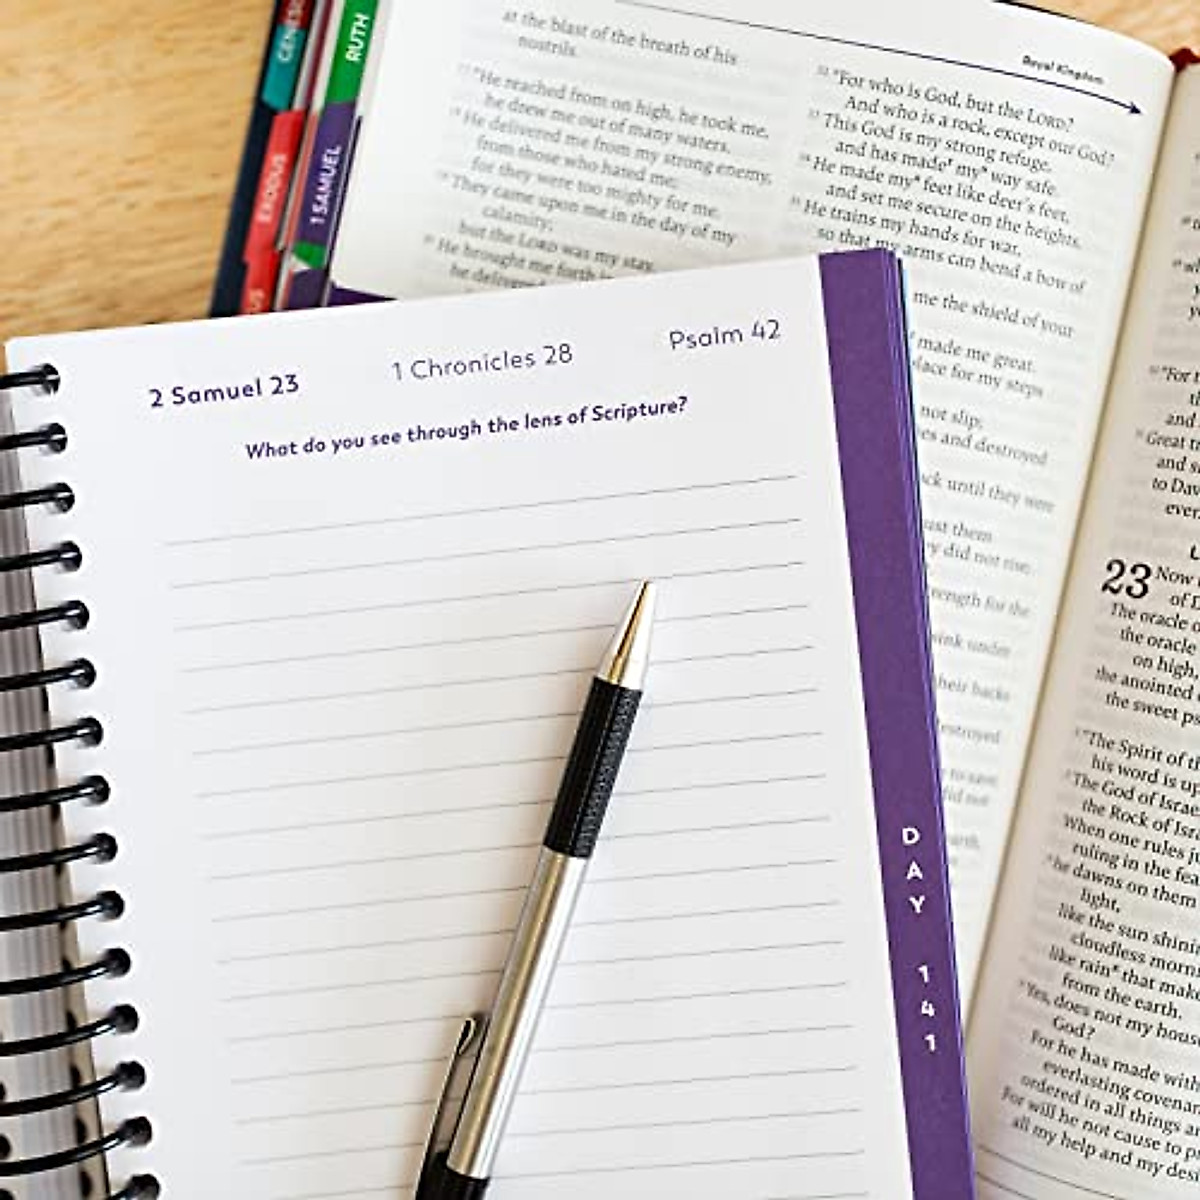 GENESIS
EXODUS
RUTH
1 SAMUEL
at the blast of the breath of his
nostrils.
"He reached from on high, he took me,
he drew me out of many waters.
He delivered me from my strong enemy,
from those who hated me,
for they were too mighty for me.
They came upon me in the day of my
calamity;
but the LORD was my stay.
He brought me forth
he
Royal Kingdom
"For who is God, but the LORD?
And who is a rock, except our God?
This God is my strong refuge,
and has made my way safe.
He made my feet like deer's feet,
and set me secure on the heights.
He trains my hands for war,
so that my arms can bend a bow of
me the shield of your
made me great.
place for my steps
not slip;
and destroyed
until they were
them
did not rise;
for the
under
their backs
destroyed
to save,
did not
2 Samuel 23
1 Chronicles 28
Psalm 42
What do you see through the lens of Scripture?
DAY 141
"For
and
Great
and
to Dav
ever.
23 Now
of D
The oracle o
the oracle
on high,
the anointed
the sweet ps
"The Spirit of th
his word is up
The God of Israe
the Rock of Isra
When one rules ju
ruling in the fea
he dawns on them
light,
like the sun shini
cloudless morn
like rain that make
from the earth.
Yes, does not my hous
God?
For he has made with
everlasting covenan
ordered in all things an
For will he not cause to pr
all my help and my desi